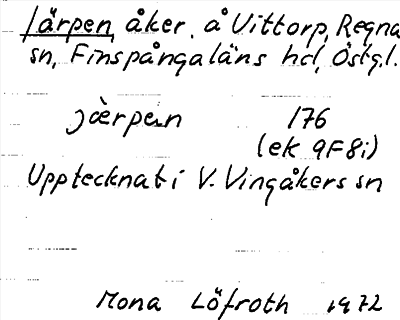 Järpen, åker, å Vittorp, Regna
sn, Finspångaläns hd, Östg.l.
jä̀rpe̶n 176
(ek 9F8i)
Upptecknat i V. Vingåkers sn
Mona Löfroth 1972